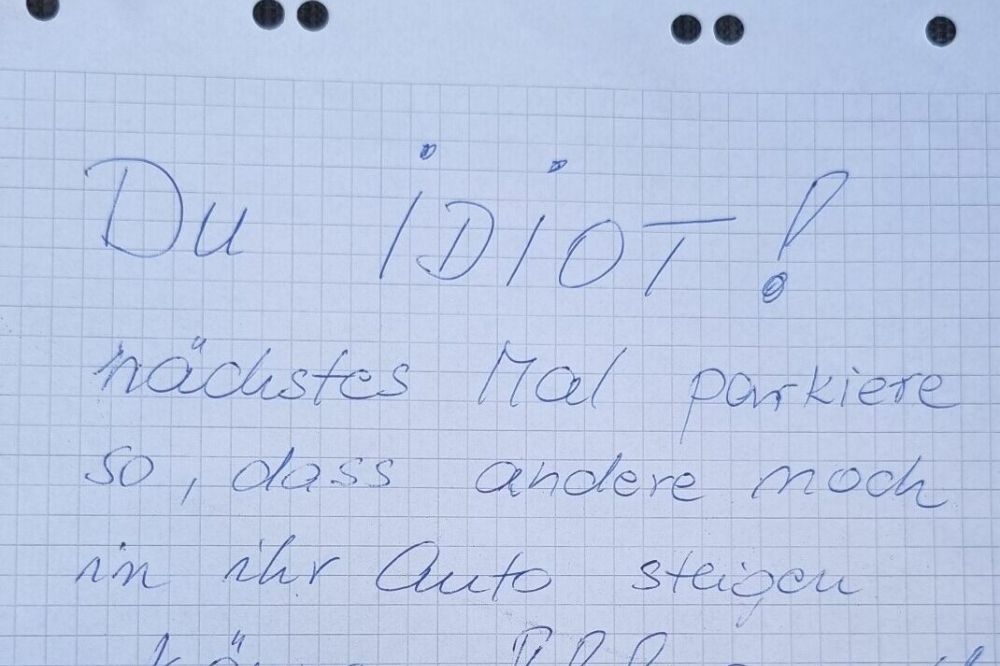 Du iDiOT!
nächstes Mal parkiere
so, dass andere noch
in ihr Auto steigen